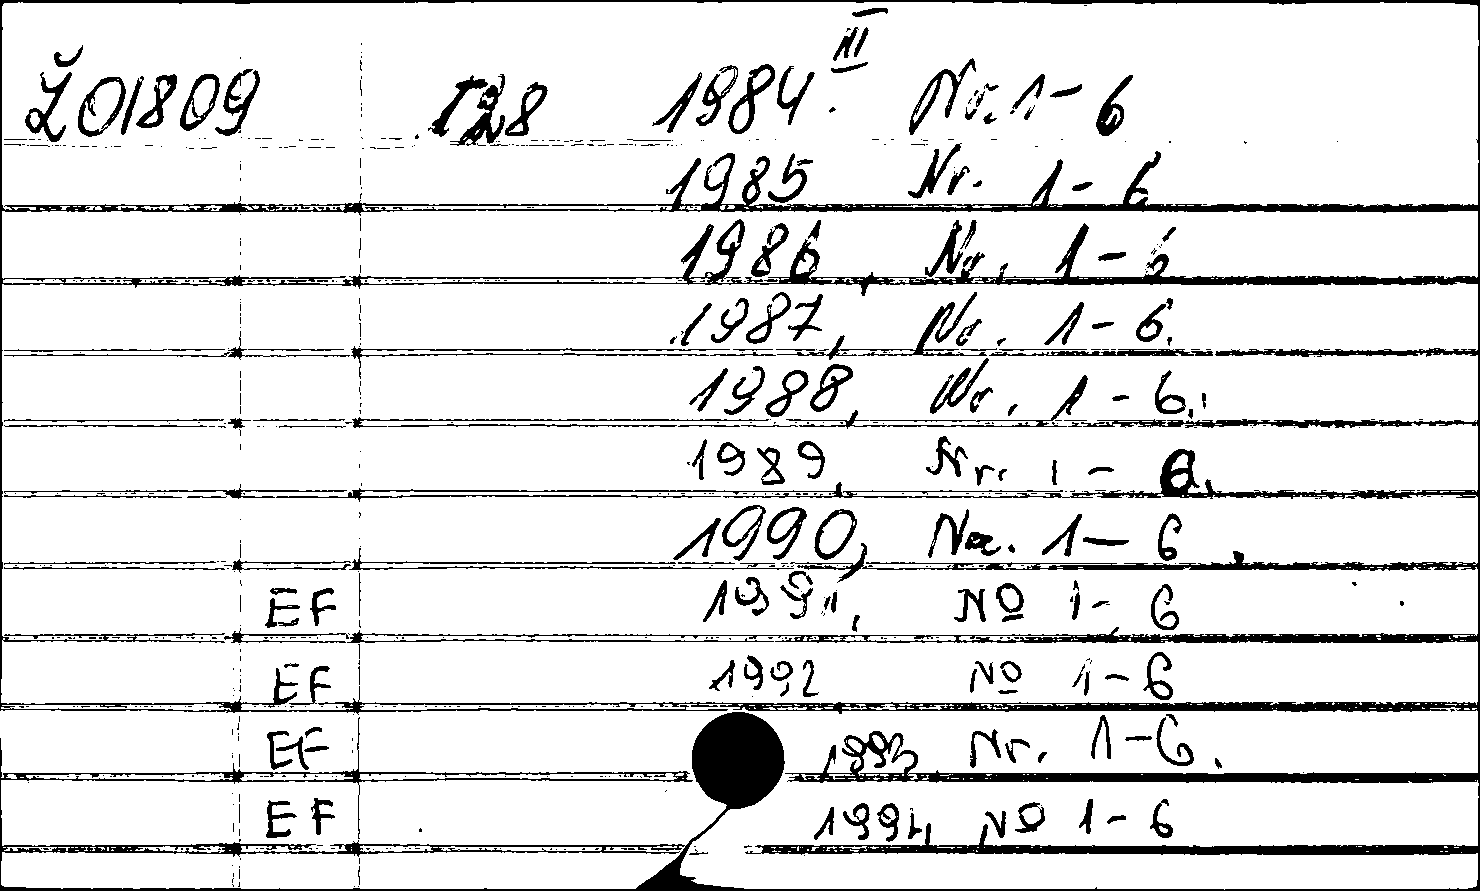 Ž01809 T28 1984. III Nr. 1-6
1985 Nr. 1-6
1986, Nr. 1-6
1987, Nr. 1-6.
1988, Nr. 1-6.
1989, Nr. 1-6.
1990, Nr. 1-6.
EF 1991, № 1-6
EF 1992 № 1-6
EF 1993 Nr. 1-6.
EF 1994, № 1-6